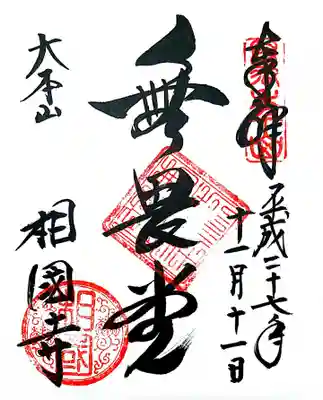 奉拝
平成二十七年
十一月十一日
無畏堂
大本山
相國寺